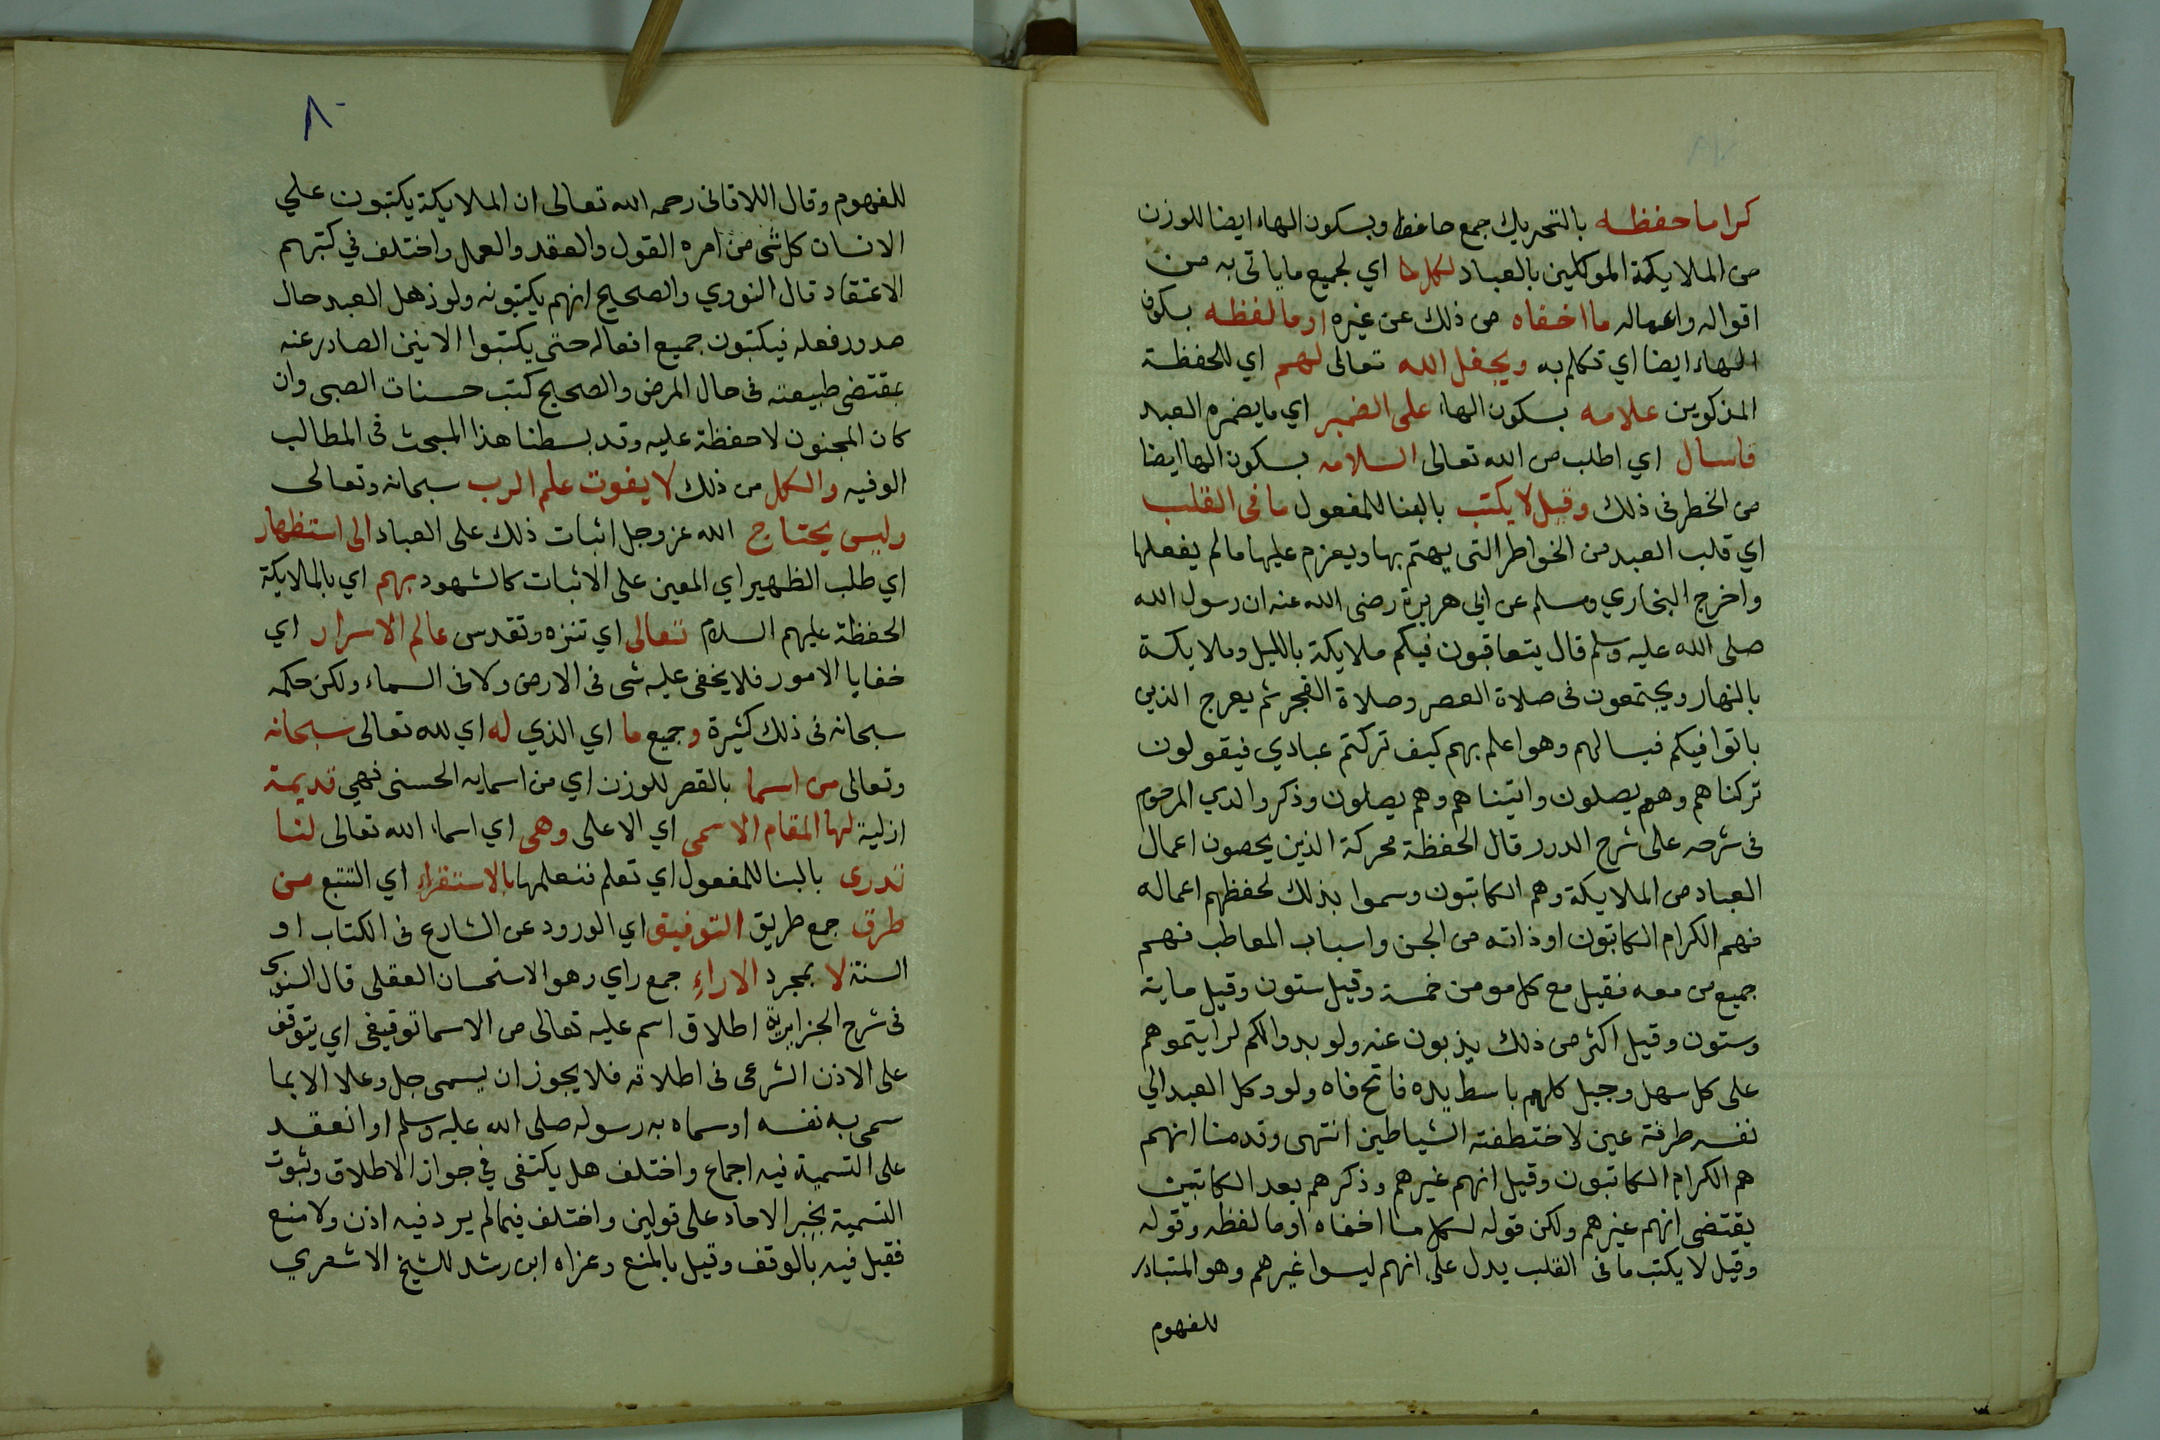 كراما حفظه بالتحريك جمع حافظ وبسكون الهاء ايضا للوزن
من الملايكة الموكلين بالعباد لكل ما اي لجميع ما ياتي به من
اقواله واعماله ما اخفاه من ذلك عن غيره او ما لفظه بسكون
الهاء ايضا اي تكلم به ويجعل الله تعالى لهم اي للحفظة
المذكورين علامه بسكون الهاء على الضمير اي ما يضمره العبد
فاسال اي اطلب من الله تعالى السلامه بسكون الها ايضا
من الخطر في ذلك وقيل لا يكتب بالبنا للمفعول ما في القلب
اي قلب العبد من الخواطر التي يهتم بها ويعزم عليها ما لم يفعلها
واخرج البخاري ومسلم عن ابي هريرة رضى الله عنه ان رسول الله
صلى الله عليه وسلم قال يتعاقبون فيكم ملايكة بالليل وملايكة
بالنهار ويجتمعون في صلاة العصر وصلاة الفجر ثم يعرج الذين
باتوا فيكم فيسالهم وهو اعلم بهم كيف تركتم عبادي فيقولون
تركناهم وهم يصلون واتيناهم وهم يصلون وذكر والدي المرحوم
في شرحه على شرح الدرر قال الحفظة محركة الذين يحصون اعمال
العباد من الملايكة وهم الكاتبون وسموا بذلك لحفظهم اعماله
فهم الكرام الكاتبون او ذاته من الجن واسباب المعاطب فهم
جميع من معه فقيل مع كل مومن خمسة وقيل ستون وقيل ماية
وستون وقيل اكثر من ذلك يذبون عنه ولو بدوا لكم لرايتموهم
على كل سهل وجبل كلهم باسط يده فاتح فاه ولو وكل العبد الي
نفسه طرفة عين لاختطفته الشياطين انتهى وقدمنا انهم
هم الكرام الكاتبون وقيل انهم غيرهم وذكرهم بعد الكاتبين
يقتضي انهم غيرهم ولكن قوله لكل ما اخفاه او ما لفظه وقوله
وقيل لا يكتب ما في القلب يدل على انهم ليسوا غيرهم وهو المتبادر
للفهوم
٨٠
للفهوم وقال اللاقاني رحمه الله تعالى ان الملايكة يكتبون علي
الانسان كل شي من امره القول والعقد والعمل واختلف في كتبهم
الاعتقاد قال النووي والصحيح انهم يكتبونه ولو ذهل العبد حال
صدور فعله فيكتبون جميع افعاله حتى يكتبوا الانين الصادر عنه
بمقتضى طبيعته في حال المرض والصحيح كتب حسنات الصبي وان
كان المجنون لا حفظة عليه وقد بسطنا هذا المبحث في المطالب
الوفيه والكل من ذلك لا يفوت علم الرب سبحانه وتعالى
وليس يحتاج الله عز وجل اثبات ذلك على العباد الى استظهار
اي طلب الظهير اي المعين على الاثبات كالشهود بهم اي بالملايكة
الحفظة عليهم السلام تعالى اي تنزه وتقدس عالم الاسرار اي
خفايا الامور فلا يخفى عليه شي في الارض ولا في السماء ولكن حكمه
سبحانه في ذلك كثيرة وجميع ما اي الذي له اي لله تعالى سبحانه
وتعالى من اسما بالقصر للوزن اي من اسمايه الحسنى فهي قديمة
ازلية لها المقام الاسمى اي الاعلى وهي اي اسماء الله تعالى لنا
تدرى بالبنا للمفعول اي تعلم فنعلمها بالاستقراء اي التتبع من
طرق جمع طريق التوفيق اي الورود عن الشارع في الكتاب او
السنة لا بمجرد الاراء جمع راي وهو الاستحسان العقلي قال السنوسي
في شرح الجزايرية اطلاق اسم عليه تعالى من الاسما توقيفي اي يتوقف
على الاذن الشرعي في اطلاقه فلا يجوز ان يسمى جل وعلا الا بما
سمى به نفسه او سماه به رسوله صلى الله عليه وسلم او انعقد
على التسمية فيه اجماع واختلف هل يكتفى في جواز الاطلاق وثبوت
التسمية بخبر الاحاد على قولين واختلف فيما لم يرد فيه اذن ولا منع
فقيل فيه بالوقف وقيل بالمنع وعزاه ابن رشد للشيخ الاشعري